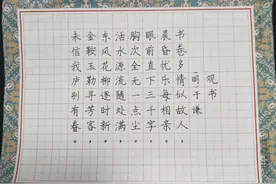 观书
明于谦
书卷多情似故人，
晨昏忧乐每相亲。
眼前直下三千字，
胸次全无一点尘。
活水源流随处满，
东风花柳逐时新。
金鞍玉勒寻芳客，
未信我庐别有春。